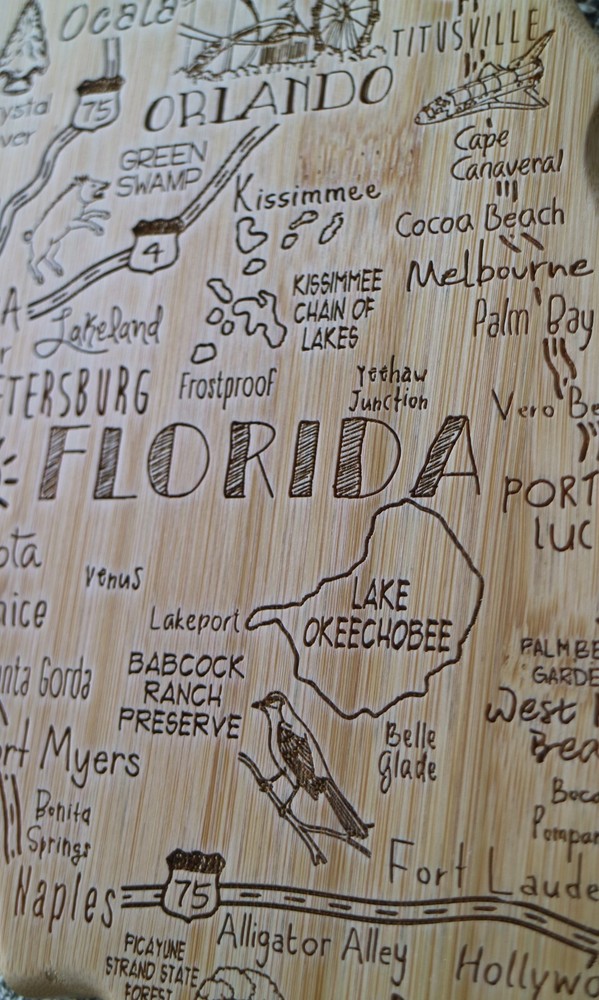 Ocala
TITUSVILLE
75
ORLANDO
GREEN
SWAMP
Cape
Canaveral
Kissimmee
Cocoa Beach
4
KISSIMMEE
CHAIN OF
LAKES
Melbourne
Lakeland
Palm Bay
Frostproof
Yeehaw
Junction
Vero Be
TERSBURG
FLORIDA
PORT
LUC
ota
Venus
nice
Lakeport
LAKE
OKEECHOBEE
BABCOCK
RANCH
PRESERVE
nta Gorda
PALM BE
GARDE
West
Bea
rt Myers
Belle
Glade
Bonita
Springs
Boca
Pompan
Fort Laude
Naples
75
Alligator Alley
Hollywo
PICAYUNE
STRAND STATE
FOREST